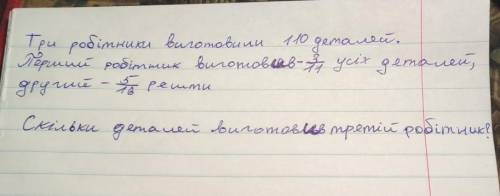 Три робітники виготовили 110 деталей.
Перший робітник виготовив - 3/11 усіх деталей,
другий - 5/16 решти
Скільки деталей виготовив третій робітник?